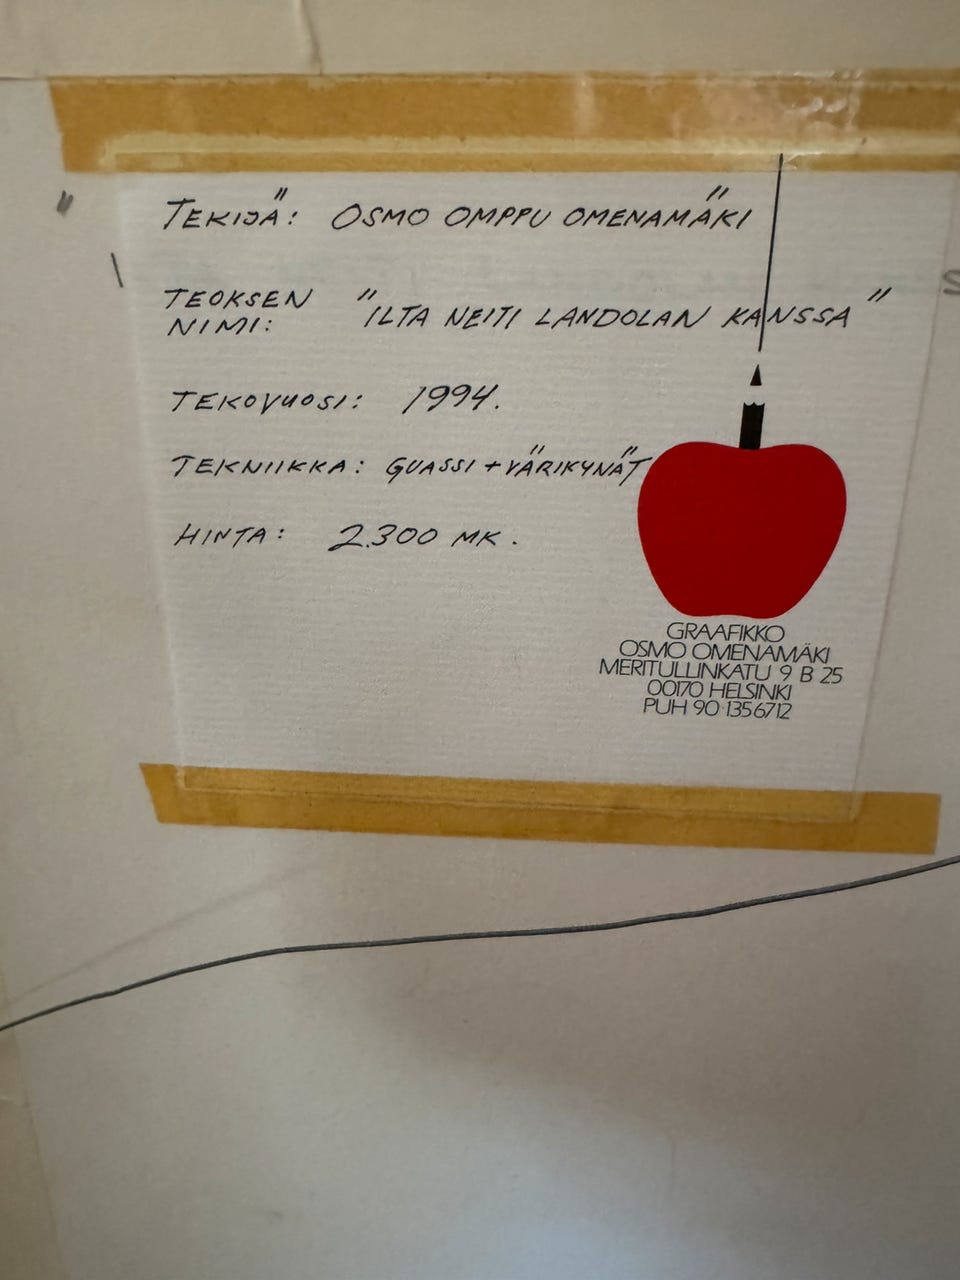 TEKIJÄ: OSMO OMPPU OMENAMÄKI
TEOKSEN
NIMI: "ILTA NEITI LANDOLAN KANSSA"
TEKOVUOSI: 1994.
TEKNIIKKA: GUASSI + VÄRIKYNÄT
HINTA: 2.300 MK.
GRAAFIKKO
OSMO OMENAMÄKI
MERITULLINKATU 9 B 25
00170 HELSINKI
PUH 90 1356712